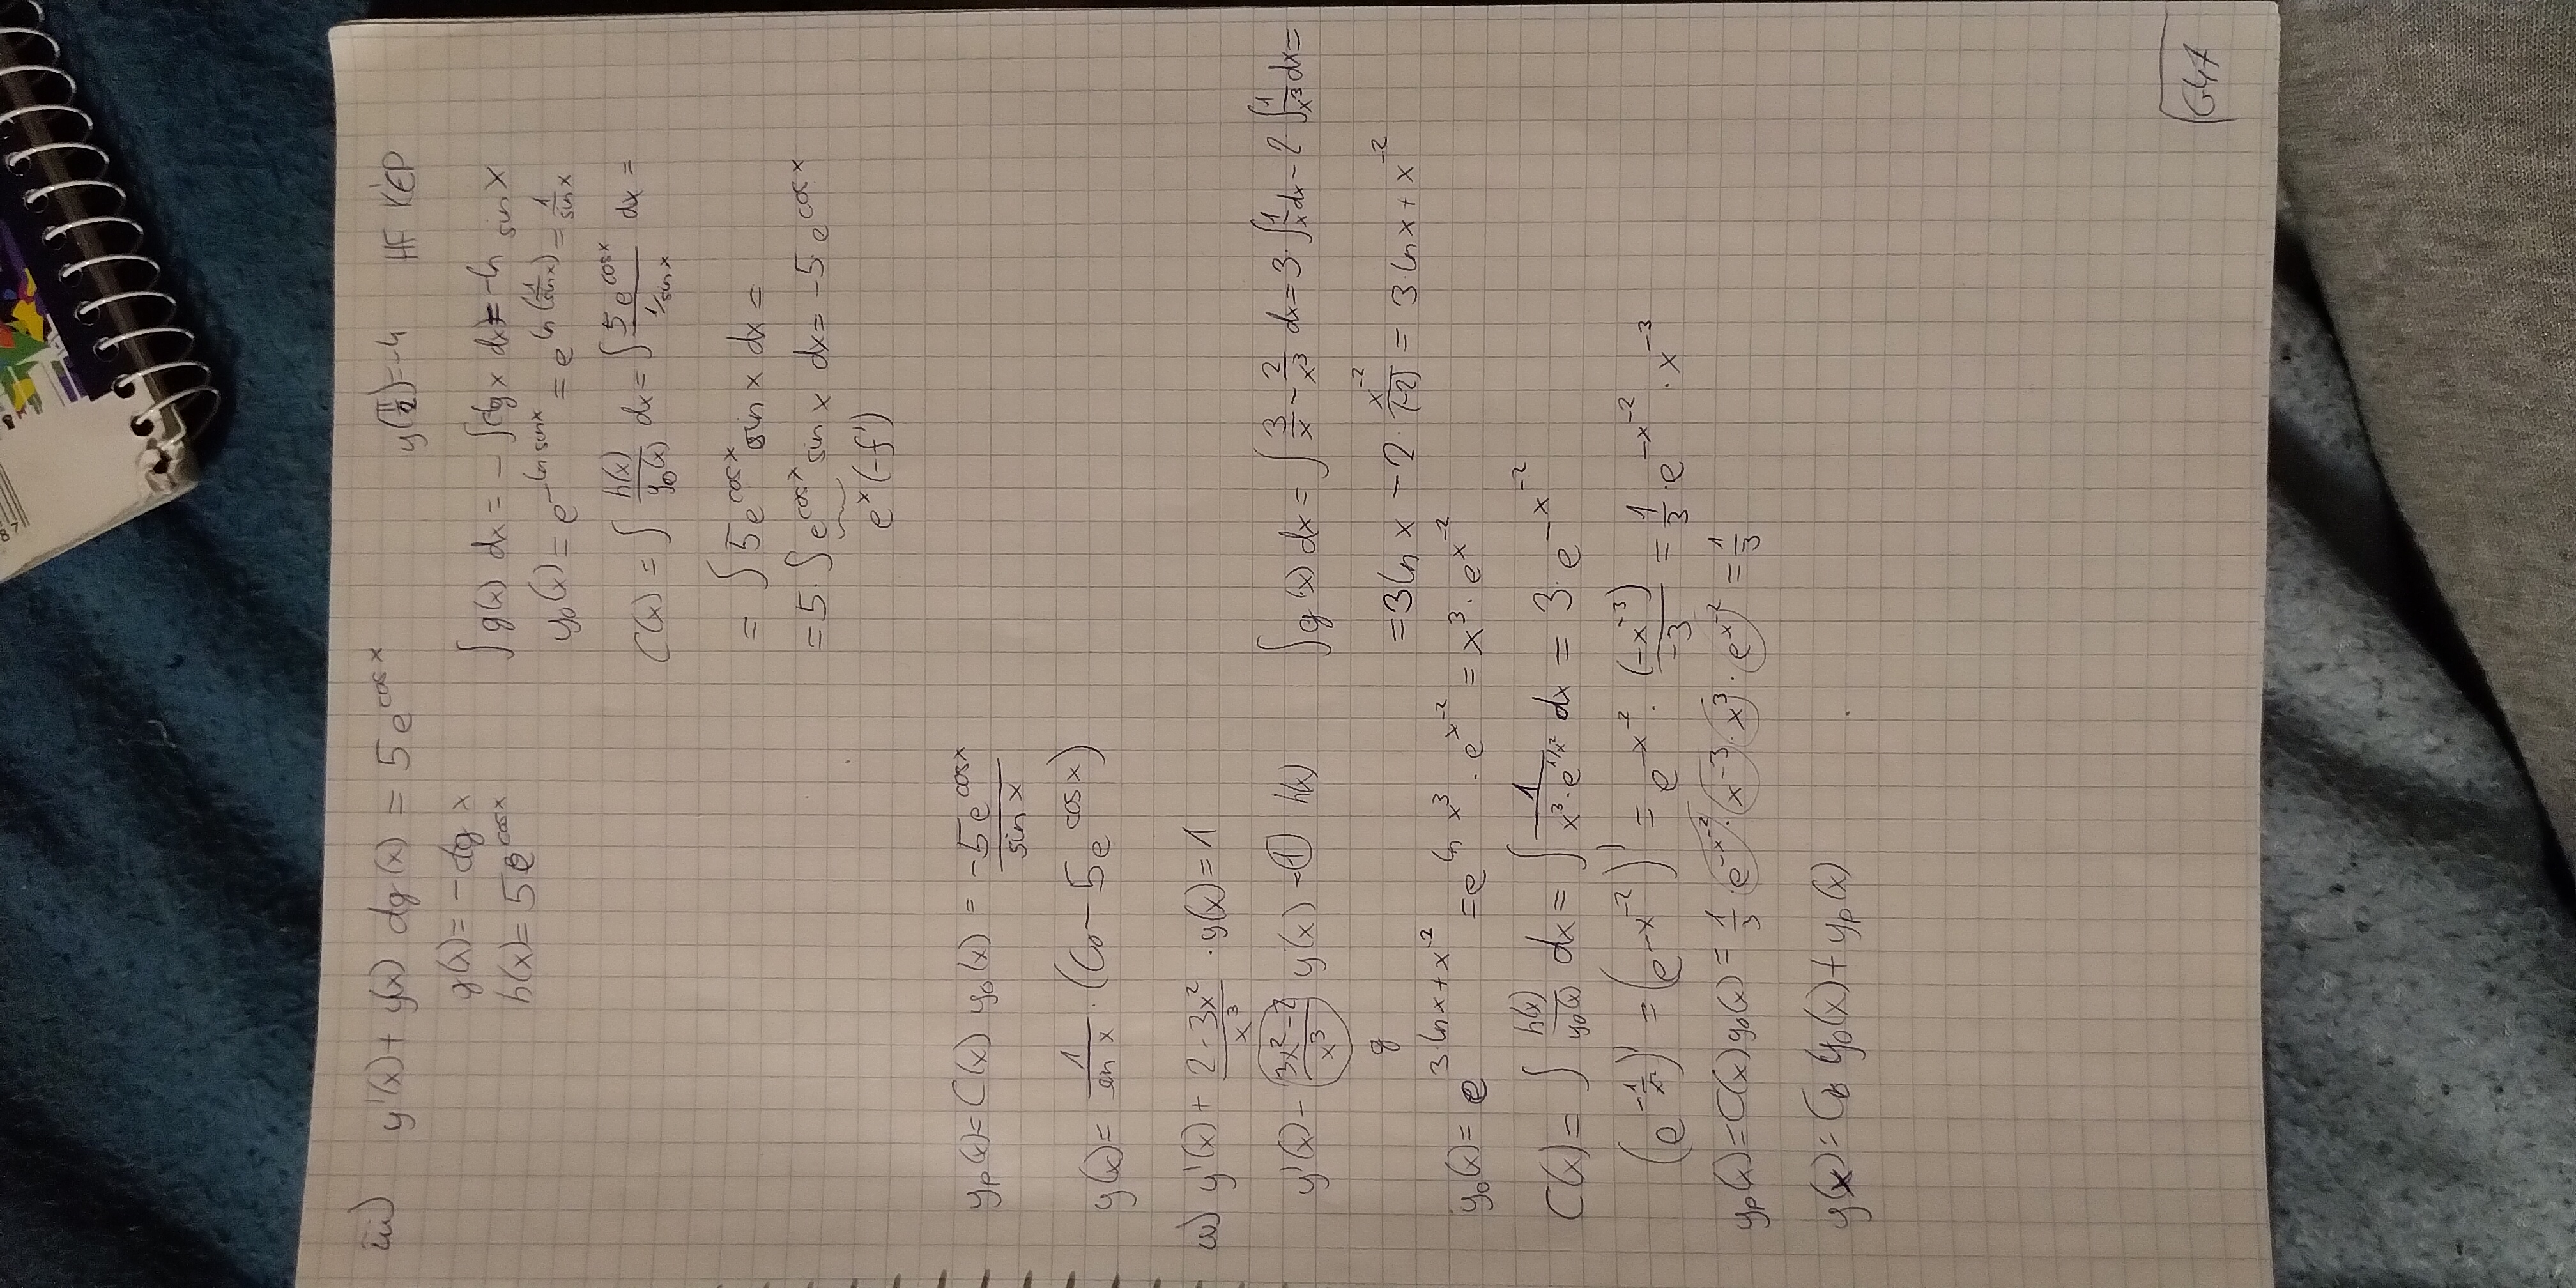 iii) y'(x) + y(x) ctg(x) = 5e^{cos x} y(π/2) = -4 HF KÉP
g(x) = -ctg x
h(x) = 5e^{cos x}
∫g(x) dx = -∫ctg x dx = -ln sin x
y₀(x) = e^{-ln sin x} = e^{ln(1/sin x)} = 1/sin x
C(x) = ∫ h(x)/y₀(x) dx = ∫ 5e^{cos x}/(1/sin x) dx =
= ∫ 5e^{cos x} sin x dx =
= 5·∫ e^{cos x} sin x dx = -5·e^{cos x}
e^x (-f')
y_p(x) = C(x) y₀(x) = -5e^{cos x}/sin x
y(x) = 1/sin x · (C₀ - 5e^{cos x})
y'(x) + (2-3x²)/x³ · y(x) = 1
y'(x) - (3x²-2)/x³ y(x) = 1 h(x)
g
∫g(x) dx = ∫ 3/x - 2/x³ dx = 3·∫1/x dx - 2·∫1/x³ dx =
= 3 ln x - 2·x^{-2}/(-2) = 3·ln x + x^{-2}
y₀(x) = e^{3·ln x + x^{-2}} = e^{ln x³} · e^{x^{-2}} = x³·e^{x^{-2}}
C(x) = ∫ h(x)/y₀(x) dx = ∫ 1/(x³·e^{1/x²}) dx = 3·e^{-x^{-2}}
(e^{-1/x²})' = (e^{-x^{-2}})' = e^{-x^{-2}} · (-x^{-3})/-3 = 1/3·e^{-x^{-2}}·x^{-3}
y_p(x) = C(x) y₀(x) = 1/3·e^{-x^{-2}}·x^{-3}·x³·e^{x^{-2}} = 1/3
y(x) = C₀ y₀(x) + y_p(x)
G47